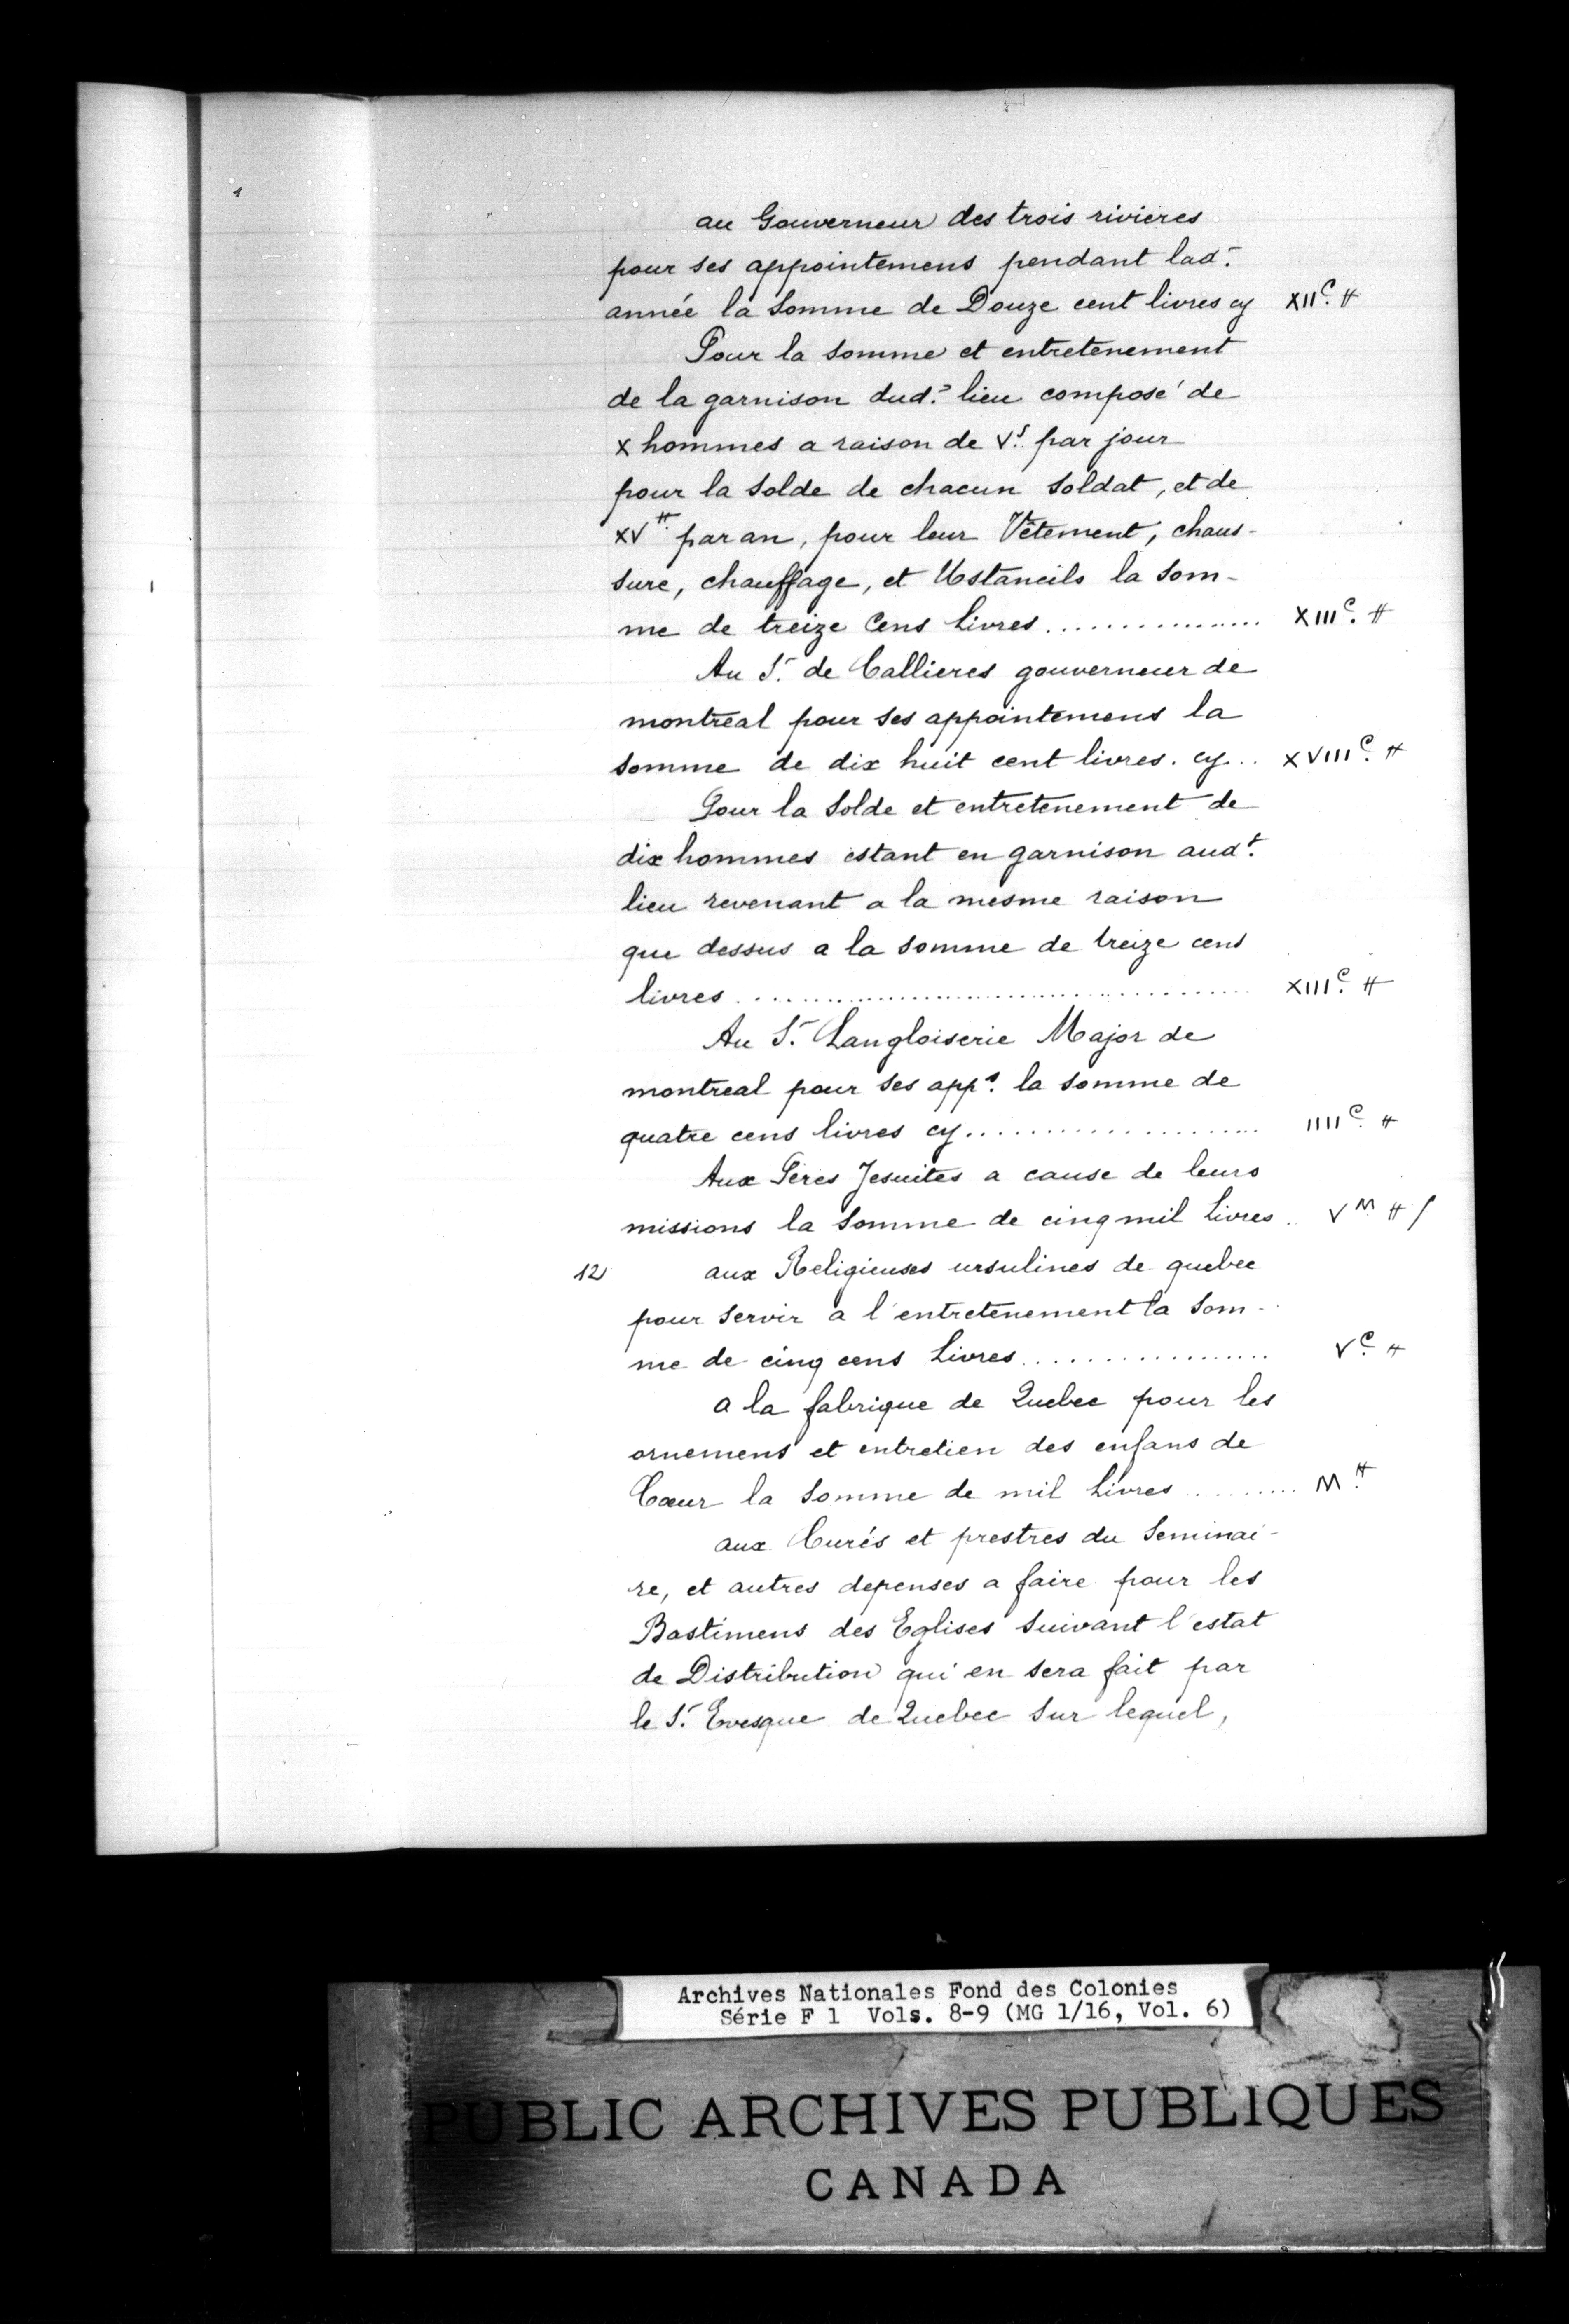 au Gouverneur des trois rivieres
pour ses appointemens pendant lad.
année la somme de Douze cent livres cy XIIᶜ ₶
Pour la somme et entretenement
de la garnison dud. lieu composé de
X hommes a raison de Vˢ par jour
pour la solde de chacun soldat, et de
XV ₶ par an, pour leur Vêtement, chaus-
sure, chauffage, et Ustancils la som-
me de treize Cens Livres ............... XIIIᶜ ₶
Au Sʳ de Callieres gouverneur de
montreal pour ses appointemens la
somme de dix huit cent livres. cy .. XVIIIᶜ ₶
Pour la Solde et entretenement de
dix hommes estant en garnison audᵗ
lieu revenant a la mesme raison
que dessus a la somme de treize cens
livres ............................... XIIIᶜ ₶
Au Sʳ Langloiserie Major de
montreal pour ses appˢ la somme de
quatre cens livres cy .................... IIIIᶜ ₶
Aux Peres Jesuites a cause de leurs
missions la somme de cinq mil Livres . Vᴹ ₶ /
12 aux Religieuses ursulines de quebec
pour servir a l'entretenement la som-
me de cinq cens Livres ................. Vᶜ ₶
a la fabrique de Quebec pour les
ornemens et entretien des enfans de
Cœur la somme de mil Livres ......... M ₶
aux Curés et prestres du Seminai-
re, et autres depenses a faire pour les
Bastimens des Eglises suivant l'estat
de Distribution qui en sera fait par
le Sʳ Evesque de Quebec sur lequel,
Archives Nationales Fond des Colonies
Série F 1 Vols. 8-9 (MG 1/16, Vol. 6)
PUBLIC ARCHIVES PUBLIQUES
CANADA